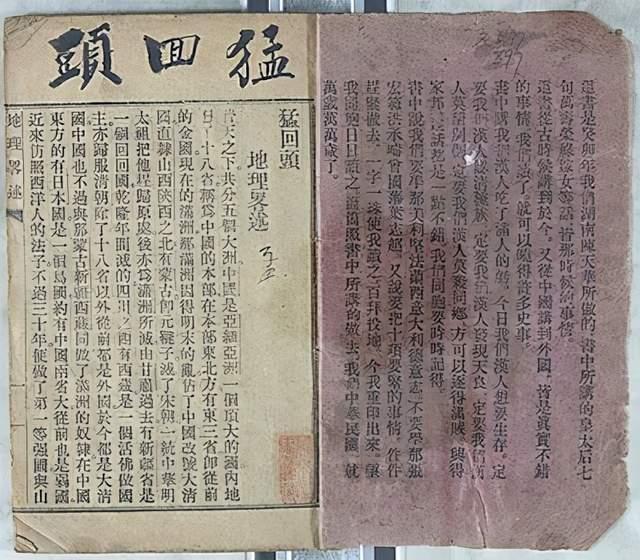 這書是癸卯年我們湖南陳天華所做的 書中所講的皇太后七
旬萬壽榮祿嫁女等話 皆那時候的事情。
這書從古時候講到於今。又從中國講到外國。皆是眞實不錯
的事情。我們讀了。就可以曉得許多史事。
書中講我們漢人吃了滿人的虧。今日我們漢人想要生存。定
要我們漢人 清滿族 一定要我們漢人發現天良 一定要我們漢
人莫 別 一定要我們漢人莫殺同鄉 方可以逐得滿賊 興得
家邦 這話 是一點不錯。我們同胞要時時記得。
書中說我們要學那美利堅法蘭西意大利德意志 不要學那張
宏範洪承疇曾國藩葉志超。又說要把十項要緊的事情。件件
趕緊做去。一字一珠使我讀之百拜投地。今我重印出來。願
我同胞日日讀之 並須照書中所講的做去。我們中華民國。就
萬歲萬萬歲了。
猛囬頭
猛回頭
地理畧述
普天之下共分五個大洲中國是亞細亞洲一個頂大的國內地
有十八省稱爲中國的本部在本部東北方有東三省卽從前
的金國現在的滿洲那滿洲因得明末的亂佔了中國改號大清
國直隸山西陝西之北有蒙古卽元韃子滅了宋朝一統中華明
太祖把他趕歸原處後亦爲滿洲所滅由甘肅過去有新疆省是
一個回回國乾隆年間滅的四川之西有西藏是一個活佛做國
主亦歸服淸朝除了十八省以外從前都是外國於今都是大清
國中國也不過與那蒙古新疆西藏同做了滿洲的奴隸在中國
東方的有日本國是一個島國約有中國兩省大從前也是弱國
近來仿照西洋人的法子不過三十年便做了第一等強國與山
地理畧述
397